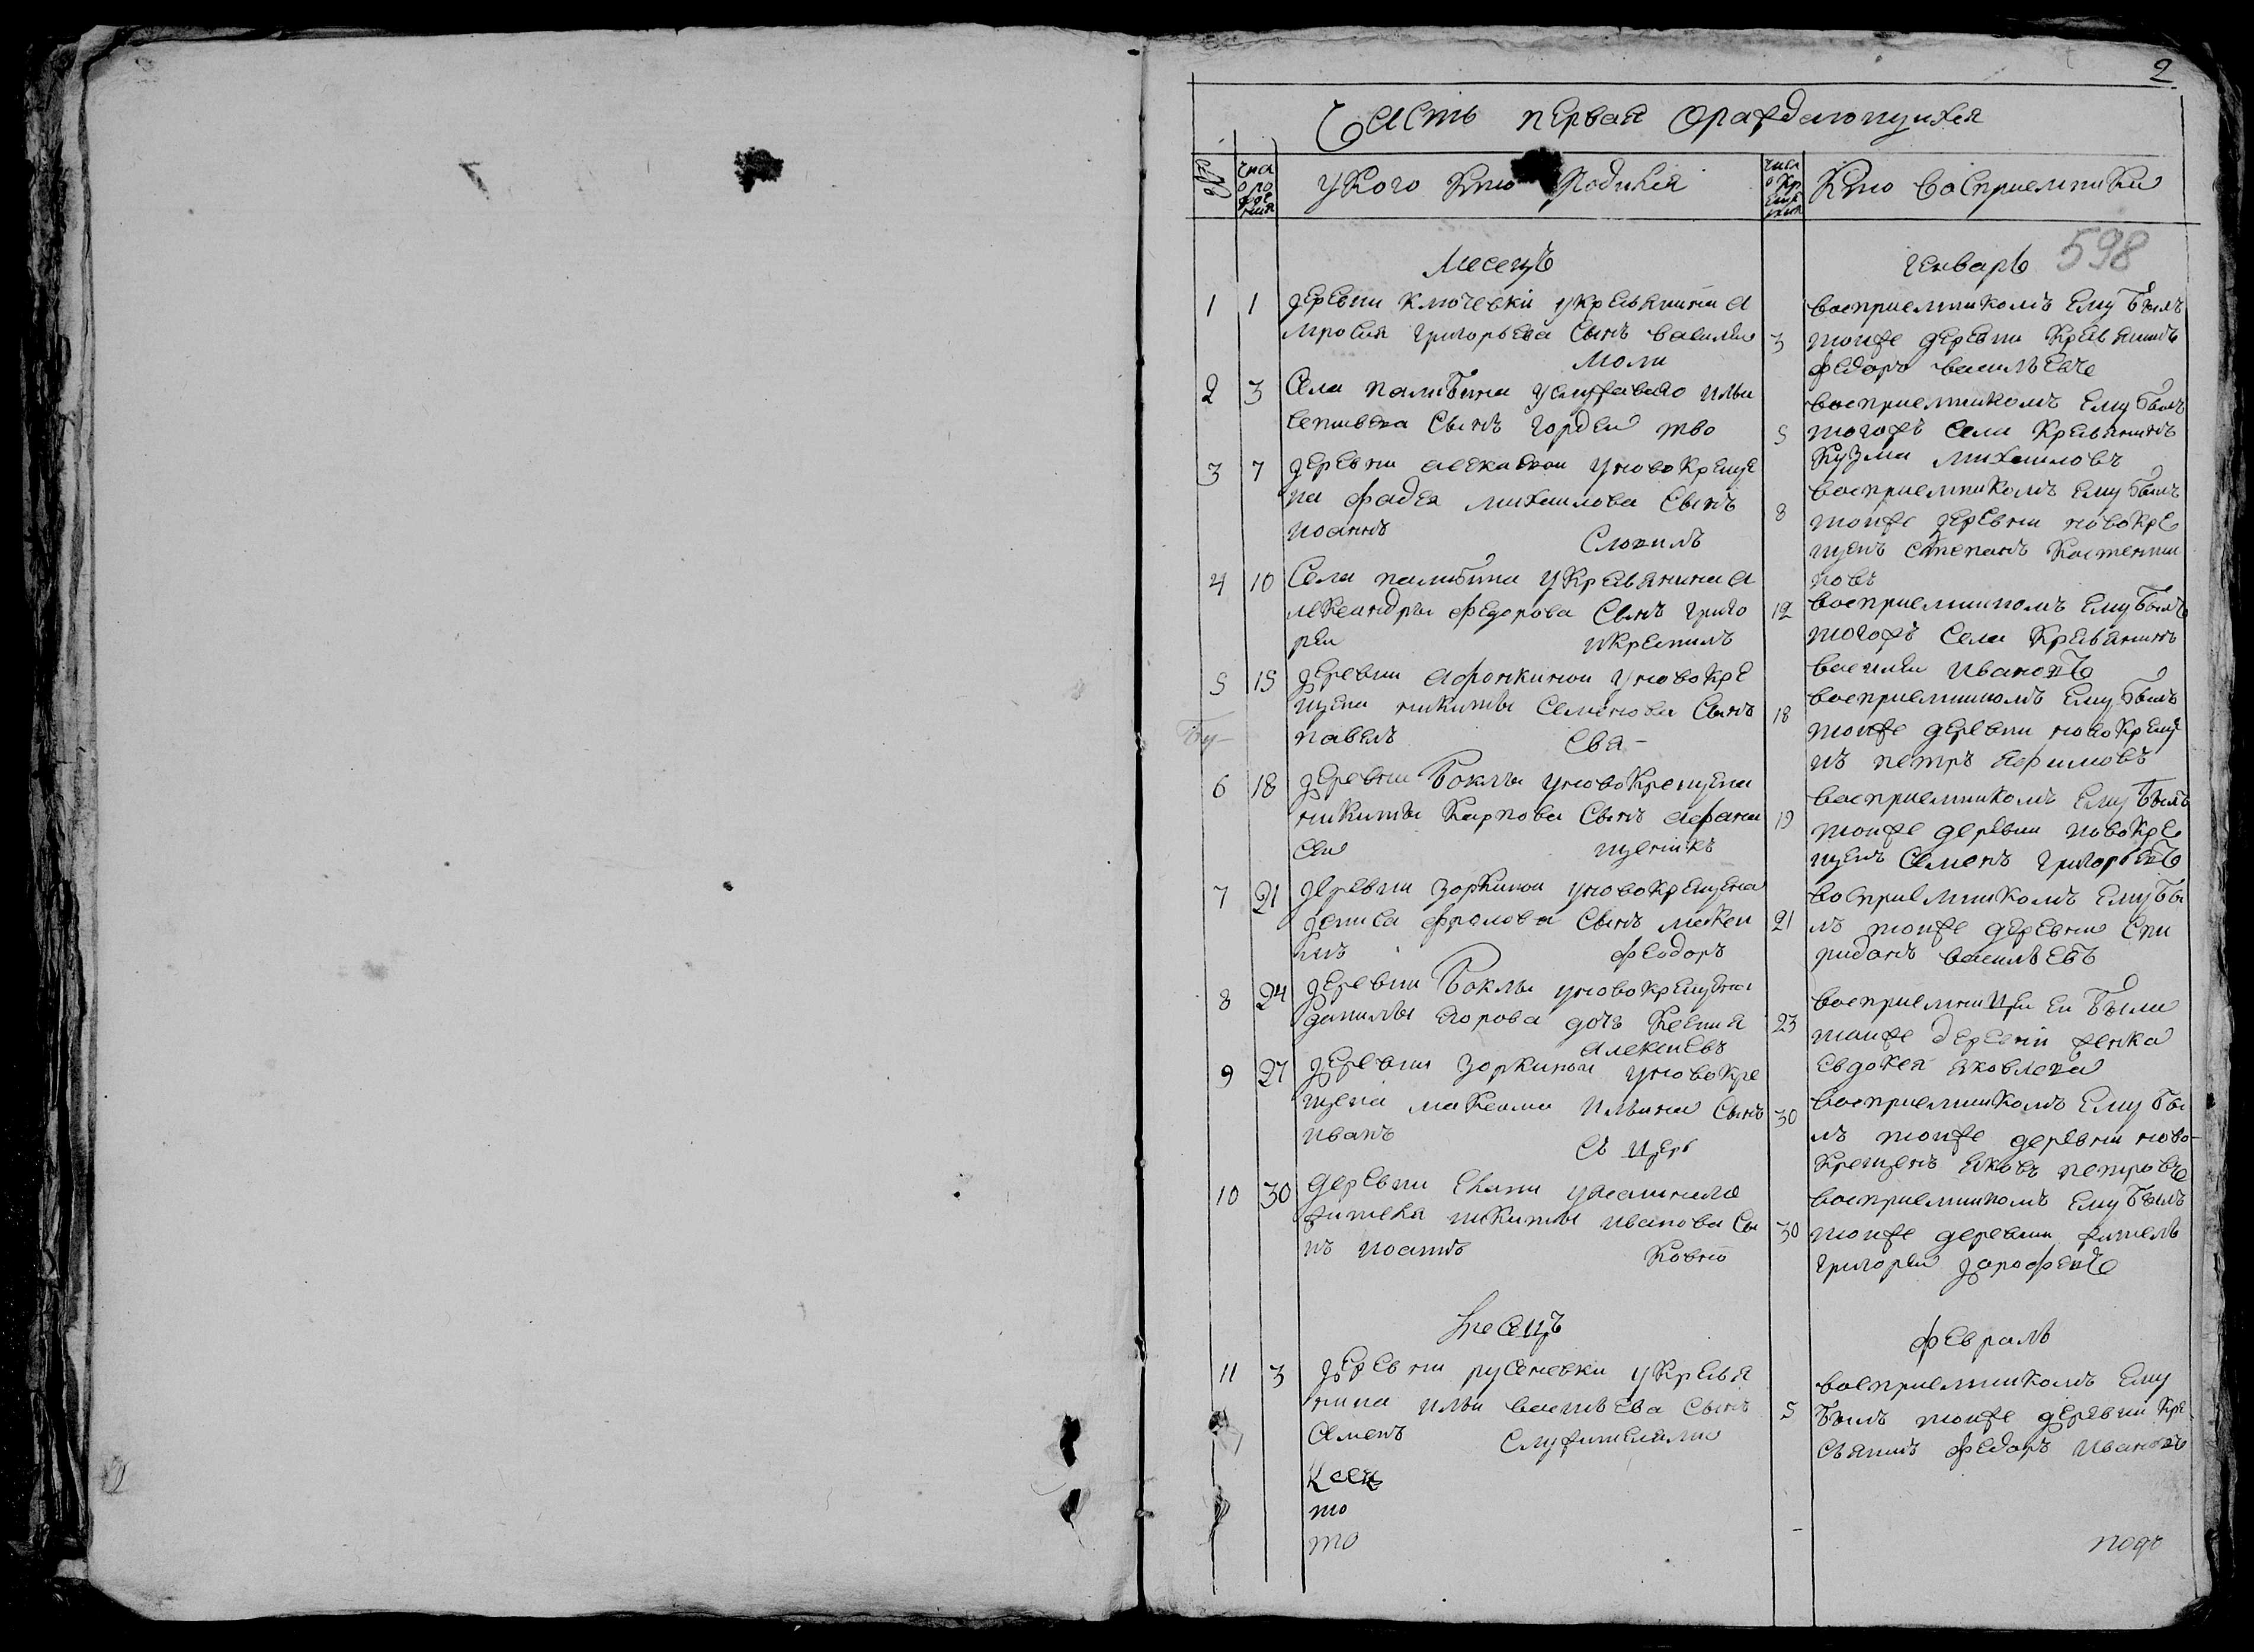 2
Часть первая ораждающихся
числ о ро жде ния
У кого кто родился
числ о кр ещ ения
Кто восприемники
598
Месецъ
Генварь
1 1 деревни Ключевки у крестьянина а
мросия Григорьева сынъ Василий
моли
3 восприемникомъ ему былъ
тойже деревни крестьянинъ
Федоръ Васильевъ
2 3 Села Палибина у Ильи
сынъ Гордей тво
5 восприемникомъ ему былъ
тогожъ села крестьянинъ
Кузма Михаиловъ
3 7 деревни у новокреще
на Фадея Михаилова сынъ
Иоаннъ
Слотимъ
8 восприемникомъ ему былъ
тойже деревни новокре
щенъ Степанъ Костентин
новъ
4 10 Села Палибина у крестьянина а
лександры Федорова сынъ Григо
рей
и крепимъ
12 восприемникомъ ему былъ
тогожъ села крестьянинъ
Василей Ивановъ
5 15 деревни Афонкиной у новокре
щена Никиты Семенова сынъ
Павелъ
Свя-
18 восприемникомъ ему былъ
тойже деревни новокреще
нъ Петръ Ефимовъ
Бу-
6 18 деревни Боклы у новокрещена
Никиты Карпова сынъ Афана
сей
щенникъ
19 восприемникомъ ему былъ
тойже деревни новокре
щенъ Семенъ Григорьевъ
7 21 деревни Зоркиной у новокрещена
Дениса Фролова сынъ Макси
мъ
Феодоръ
21 восприемникомъ ему бы
лъ тойже деревни Спи
ридонъ Васильевъ
8 24 деревни Боклы у новокрещена
Данилы Егорова дочь Ксения
Алексиевъ
23 восприемница ей была
тойже деревни женка
Евдокея Яковлева
9 27 деревни Зоркиной у новокре
щена Максима Ильина сынъ
Иванъ
Съ церь
30 восприемникомъ ему бы
лъ тойже деревни ново-
крещенъ Яковъ Петровъ
10 30 деревни
жителя Никиты Иванова сы
нъ Иоаннъ
Ковно
30 восприемникомъ ему былъ
тойже деревни житель
Григорей Дорофеевъ
Месецъ
Февраль
11 3 деревни Русеневки у крестья
нина Ильи Васильева сынъ
Семенъ
Служителями
5 восприемникомъ ему
былъ тойже деревни кре
стьянинъ Федоръ Ивановъ
Ксец
то
то
подъ